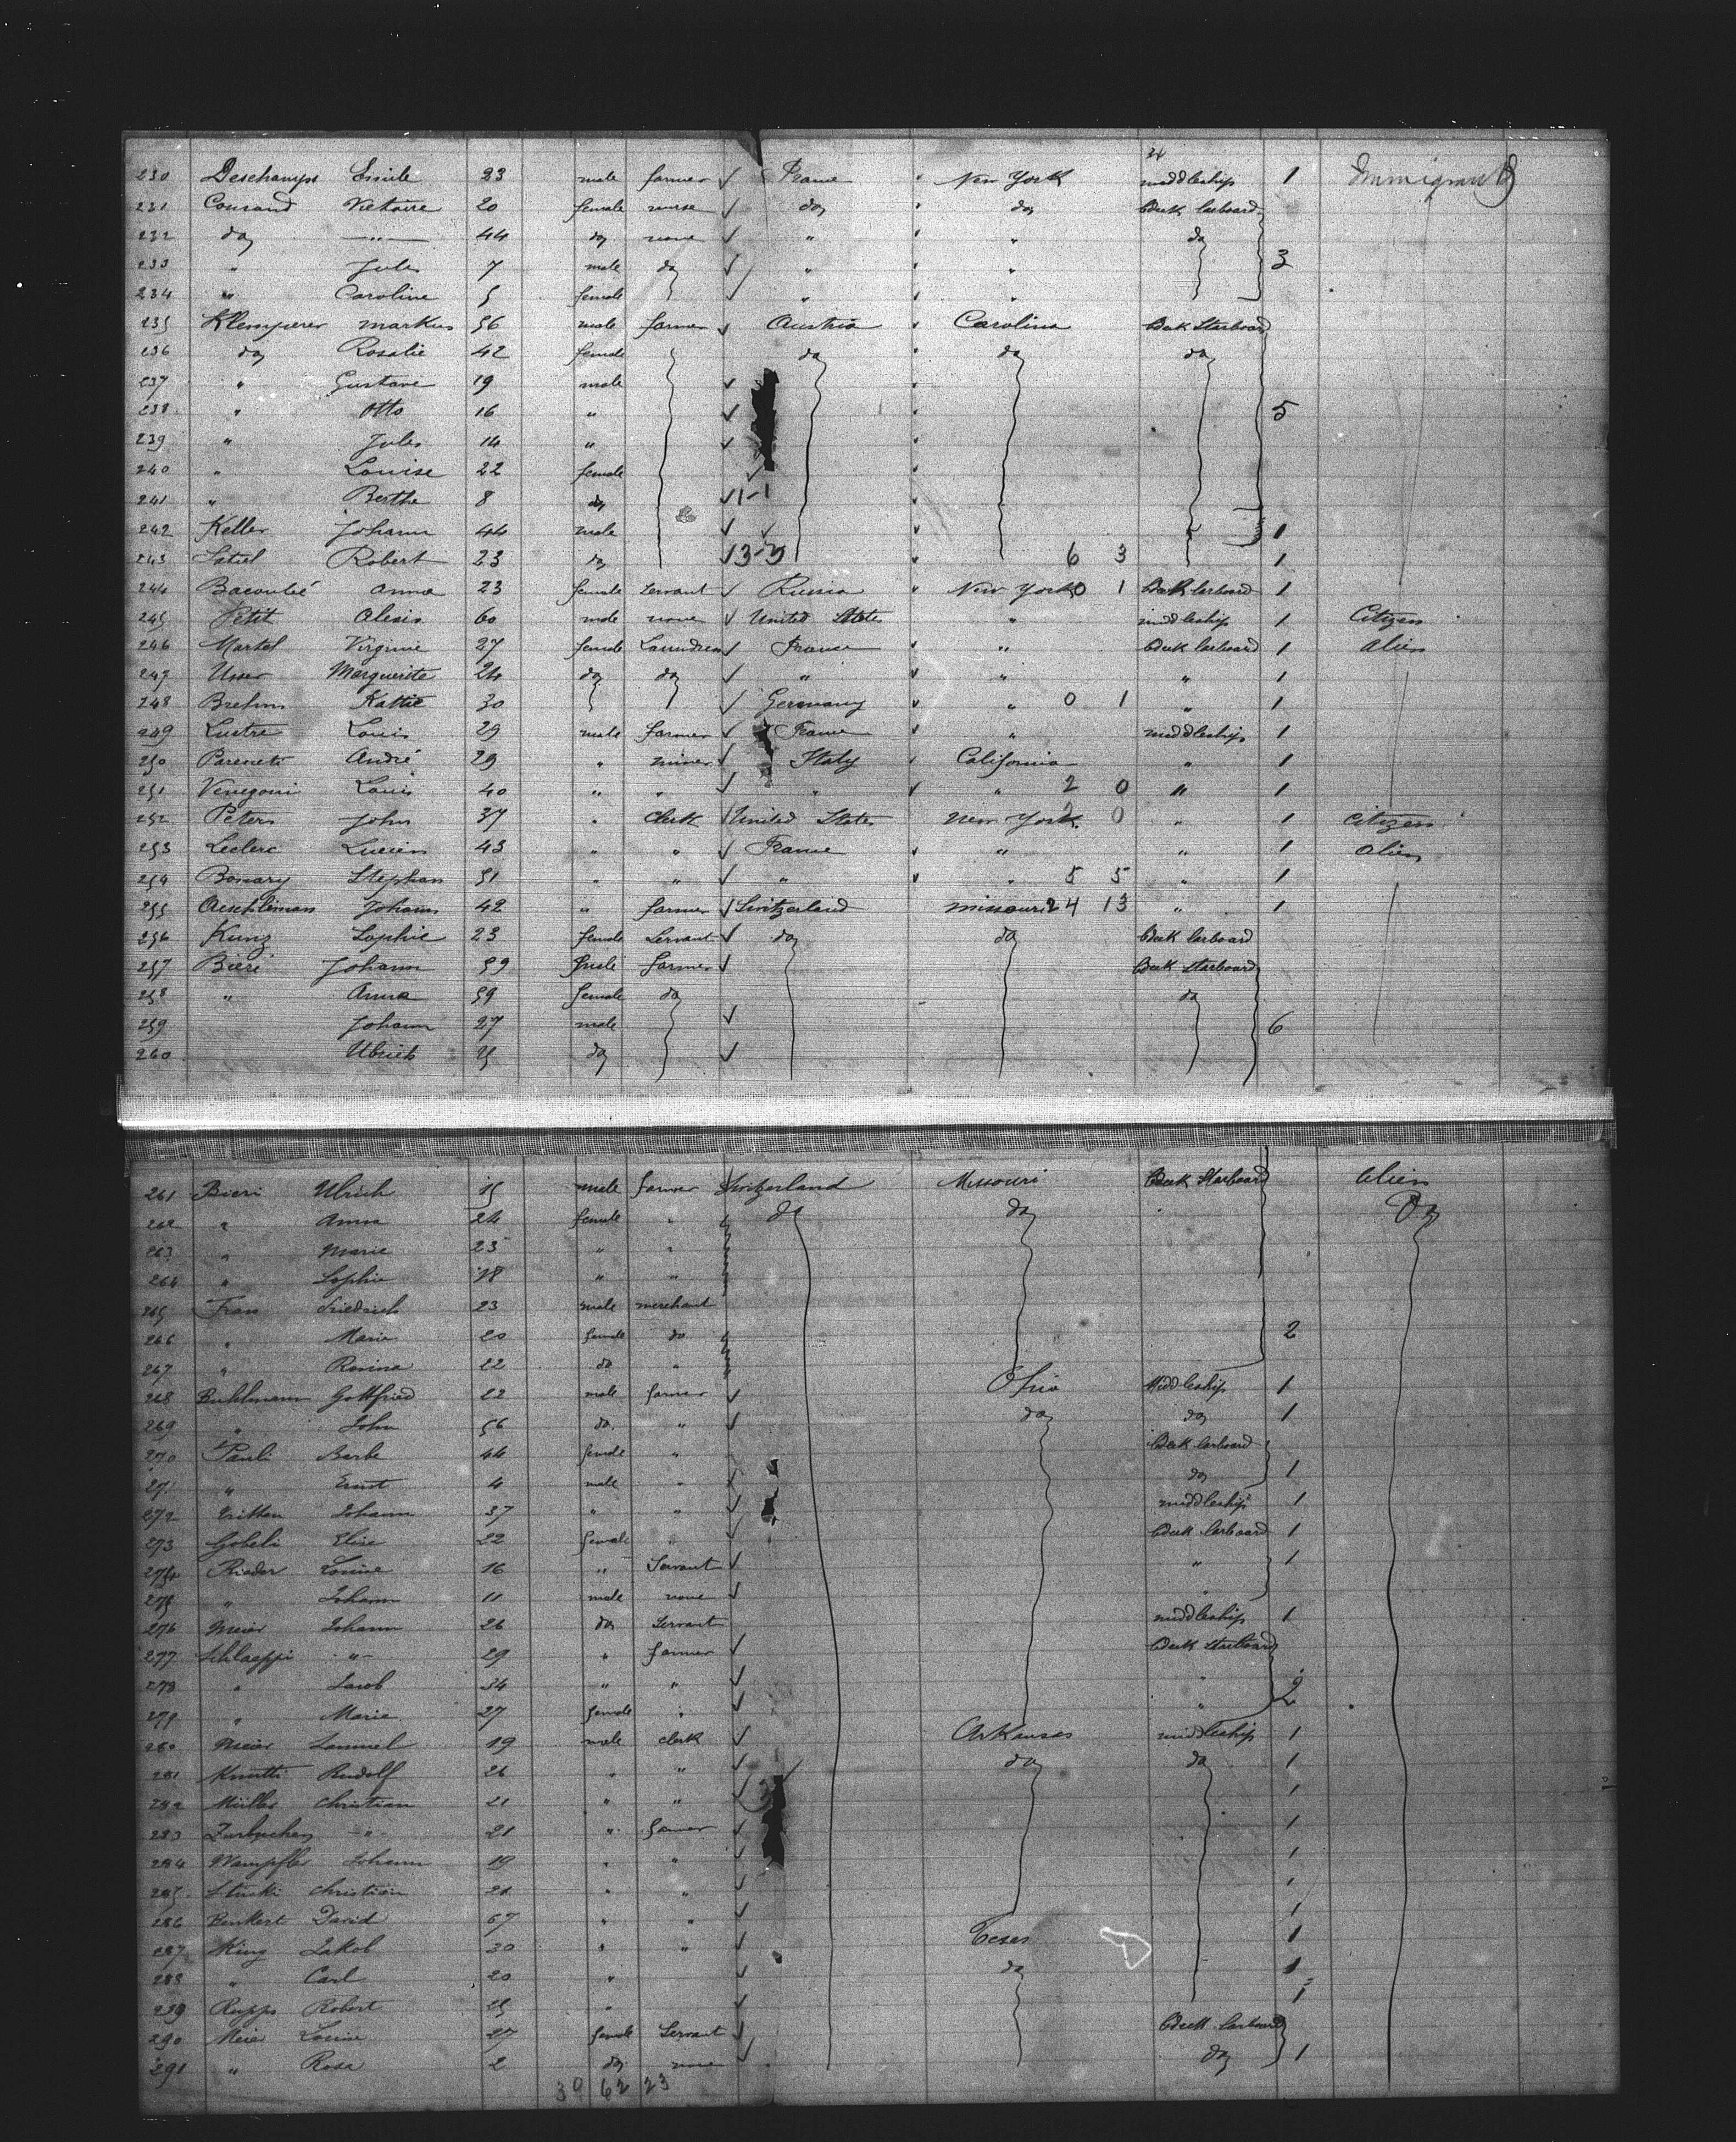 34
230 Deschamps Emile 23 male farmer ✓ France " New York middleship 1 Immigrant
231 Conrand Victoire 20 female nurse ✓ do " do Deck larboard
232 do —"— 44 do none ✓ " " " do
233 " Jules 7 male do ✓ " " " 3
234 " Caroline 5 female ✓ " " "
235 Klemperer Markus 56 male farmer ✓ Austria " Carolina Deck Starboard
236 do Rosalie 42 female do " do do
237 " Gustave 19 male ✓ "
238 " Otto 16 " ✓ " 5
239 " Jules 14 " ✓ "
240 " Louise 22 female ✓ "
241 " Berthe 8 do ✓ 1-1 "
242 Keller Johann 44 male ✓ 1
243 Robert 23 do ✓ 3-3 6 3 1
244 Anna 23 female Servant ✓ Russia " New York 0 1 Deck larboard 1
245 Petit Alexis 60 male none ✓ United States " middleship 1 Citizen
246 Martel Virginie 27 female Laundress ✓ France " " Deck larboard 1 Alien
247 Marguerite 24 do do ✓ " " " " 1
248 Brehm Kattie 30 ✓ Germany " " 0 1 " 1
249 Lustre Louis 29 male farmer ✓ France " " middleship 1
250 André 29 " miner ✓ Italy " California " 1
251 Venegoni Louis 40 " " ✓ " " " 2 0 " 1
252 Peters John 37 " Clerk ✓ United States New York 2 0 " 1 Citizen
253 Leclerc Lucien 43 " " ✓ France " " " 1 Alien
254 Bonary Stephan 51 " " ✓ " " " 5 5 " 1
255 Aeschliman Johann 42 " farmer ✓ Switzerland Missouri 24 13 " 1
256 Kunz Sophie 23 female Servant ✓ do do Deck larboard
257 Bieri Johann 59 male farmer ✓ Deck Starboard
258 " Anna 59 female do do
259 Johann 27 male ✓ 6
260 Ulrich do ✓
261 Bieri Ulrich 15 male farmer Switzerland Missouri Deck Starboard Alien
262 " Anna 24 female " do do Do
263 " Marie 23 " "
264 " Sophie 18 " "
265 Friedrich 23 male merchant
266 " Marie 20 female do 2
267 " Rosina 22 do "
268 Buhlmann Gottfried 22 male farmer ✓ Ohio Middleship 1
269 " John 56 do " ✓ do do 1
270 Pauli Barbe 44 female " Deck larboard
271 " Ernst 4 male " ✓ do 1
272 Johann 37 " " ✓ middleship 1
273 Gobeli Elise 22 female " ✓ Deck larboard 1
274 Rieder Louise 16 " Servant ✓ " 1
275 " Johann 11 male none ✓ "
276 Meier Johann 26 do Servant middleship 1
277 Schlaeppi —"— 29 " farmer ✓ Deck Starboard
278 " Jacob 34 " " ✓ " 2
279 " Marie 27 female " ✓ "
280 Meier Samuel 19 male clerk ✓ Arkansas middleship 1
281 Knutti Rudolf 26 " " ✓ do do 1
282 Müller Christian 21 " " ✓ 1
283 Zurbuchen —"— 21 " farmer ✓ 1
284 Wampfler Johann 19 " " ✓ 1
285 Stucki Christian 21 " " ✓ 1
286 Benkert David 67 " " ✓ 1
287 King Jakob 30 " " ✓ Texas 1
288 " Carl 20 " ✓ do 1
289 Rupps Robert 25 " ✓ 1
290 Meier Louise 27 female Servant ✓ Deck larboard
291 " Rosa 2 do none ✓ do 1
30 62 23